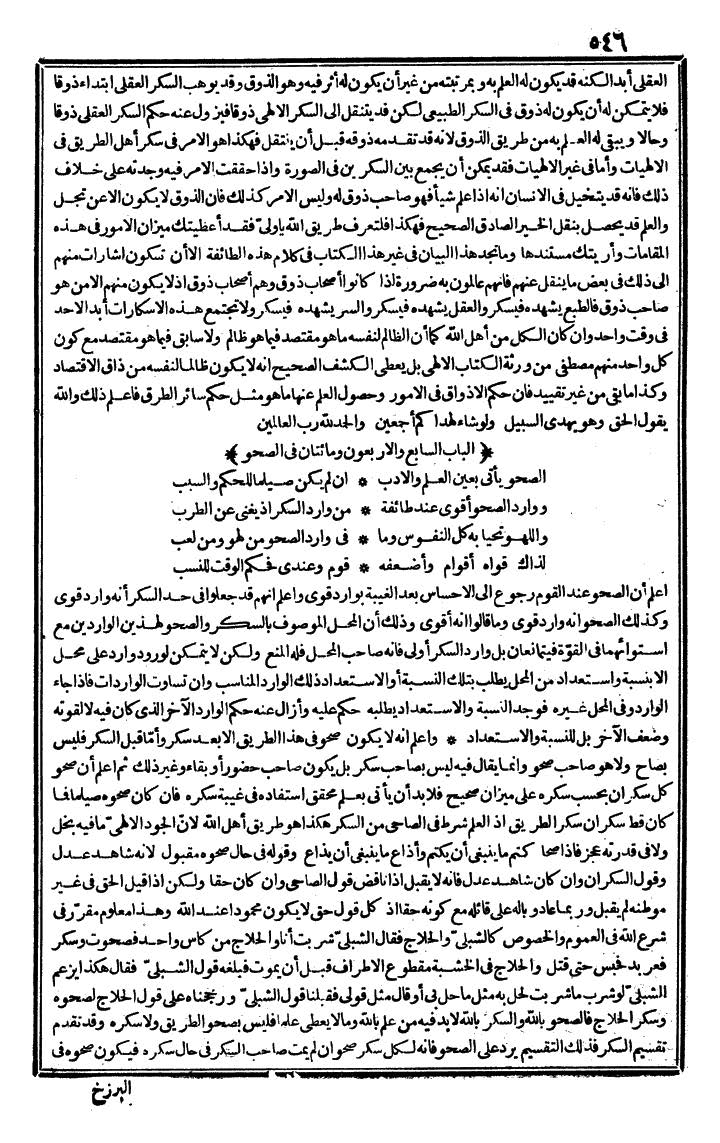 ٥٤٦
العقلى أبدا لكنه قد يكون له العلم به وبمرتبته من غير أن يكون له أثر فيه وهو الذوق وقد يوهب السكر العقلى ابتداء ذوقا
فلا يتمكن له أن يكون له ذوق فى السكر الطبيعى لكن قد يتنقل الى السكر الالهى ذوقا فيزول عنه حكم السكر العقلى ذوقا
وحالا ويبقى له العلم به من طريق الذوق لانه قد تقدمه ذوقه قبل أن ينتقل فهكذا هو الامر فى سكر أهل الطريق فى
الالهيات وأما فى غير الالهيات فقد يمكن أن يجمع بين السكرين فى الصورة واذا حققت الامر فيه وجدته على خلاف
ذلك فانه قد يتخيل فى الانسان انه اذا علم شيأ فهو صاحب ذوق له وليس الامر كذلك فان الذوق لا يكون الا عن تجل
والعلم قد يحصل بنقل الخبر الصادق الصحيح فهكذا فلتعرف طريق الله ياولىّ فقد أعطيتك ميزان الامور فى هذه
المقامات وأريتك مستندها وما تجد هذا البيان فى غير هذا الكتاب فى كلام هذه الطائفة الا أن تكون اشارات منهم
الى ذلك فى بعض ما ينقل عنهم فانهم عالمون به ضرورة اذا كانوا أصحاب ذوق وهم أصحاب ذوق اذ لا يكون منهم الا من هو
صاحب ذوق فالطبع يشهده فيسكر والعقل يشهده فيسكر والسر يشهده فيسكر ولا تجتمع هذه الاسكارات أبد الاحد
فى وقت واحد وان كان الكل من أهل الله كما أن الظالم لنفسه ما هو مقتصد فيما هو ظالم ولا سابق فيما هو مقتصد مع كون
كل واحد منهم مصطفى من ورثة الكتاب الالهى بل يعطى الكشف الصحيح انه لا يكون ظالما لنفسه من ذاق الاقتصاد
وكذا ما بقى من غير تقييد فان حكم الاذواق فى الامور وحصول العلم عنها ما هو مثل حكم سائر الطرق فاعلم ذلك والله
يقول الحق وهو يهدى السبيل ولو شاء لهداكم أجمعين والحمد لله رب العالمين
﴿الباب السابع والاربعون ومائتان فى الصحو﴾
الصحو يأتى بعين العلم والادب * ان لم يكن صيلما للحكم والسبب
ووارد الصحو أقوى عند طائفة * من وارد السكر اذ يغنى عن الطرب
واللهو تحيا به كل النفوس وما * فى وارد الصحو من لهو ومن لعب
لذاك قواه أقوام وأضعفه * قوم وعندى فحكم الوقت للنسب
اعلم أن الصحو عند القوم رجوع الى الاحساس بعد الغيبة بوارد قوى واعلم انهم قد جعلوا فى حد السكر أنه وارد قوى
وكذلك الصحو انه وارد قوى وما قالوا انه أقوى وذلك أن المحل الموصوف بالسكر والصحو لهذين الواردين مع
استوائهما فى القوّة فيتمانعان بل وارد السكر أولى فانه صاحب المحل فله المنع ولكن لا يتمكن لورود وارد على محل
الا بنسبة واستعداد من المحل يطلب بتلك النسبة أو الاستعداد ذلك الوارد المناسب وان تساوت الواردات فاذا جاء
الوارد وفى المحل غيره فوجد النسبة والاستعداد يطلبه حكم عليه وأزال عنه حكم الوارد الآخر الذى كان فيه لا لقوته
وضعف الآخر بل للنسبة والاستعداد * واعلم انه لا يكون صحو فى هذا الطريق الا بعد سكر وأمّا قبل السكر فليس
بصاح ولا هو صاحب صحو وانما يقال فيه ليس بصاحب سكر بل يكون صاحب حضور أو بقاء وغير ذلك ثم اعلم أن صحو
كل سكران بحسب سكره على ميزان صحيح فلا بد أن يأتى بعلم محقق استفاده فى غيبة سكره فان كان صحوه صيلما فما
كان قط سكران سكر الطريق اذ العلم شرط فى الصاحى من السكر هكذا هو طريق أهل الله لانّ الجود الالهىّ ما فيه بخل
ولا فى قدرته عجز فاذا صحا كتم ما ينبغى أن يكتم وأذاع ما ينبغى أن يذاع وقوله فى حال صحوه مقبول لانه شاهد عدل
وقول السكران وان كان شاهد عدل فانه لا يقبل اذا ناقض قول الصاحى وان كان حقا ولكن اذا قيل الحق فى غير
موطنه لم يقبل وربما عاد وباله على قائله مع كونه حقا اذ كل قول حق لا يكون محمودا عند الله وهذا معلوم مقرّر فى
شرع الله فى العموم والخصوص كالشبلىّ والحلاج فقال الشبلىّ شربت أنا والحلاج من كاس واحد فصحوت وسكر
فعربد فحبس حتى قتل والحلاج فى الخشبة مقطوع الاطراف قبل أن يموت فبلغه قول الشبلىّ فقال هكذا يزعم
الشبلىّ لو شرب ما شربت لحل به مثل ما حل بى أو قال مثل قولى فقبلنا قول الشبلىّ ورجحناه على قول الحلاج لصحوه
وسكر الحلاج فالصحو بالله والسكر بالله لا بد فيه من علم بالله وما لا يعطى علما فليس بصحو الطريق ولا سكره وقد تقدم
تقسيم السكر فذلك التقسيم يرد على الصحو فانه لكل سكر صحو ان لم يمت صاحب السكر فى حال سكره فيكون صحوه فى
البرزخ